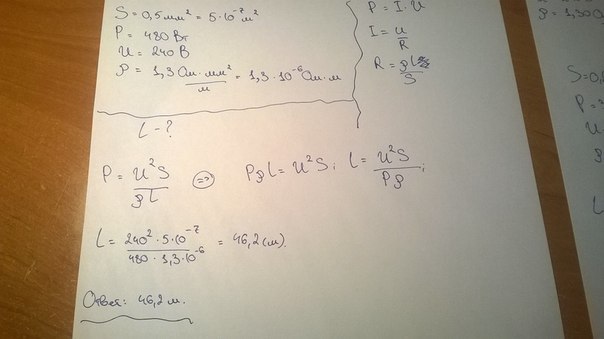 S = 0,5 мм² = 5·10⁻⁷ м²
P = 480 Вт
U = 240 В
ρ = 1,3 Ом·мм²/м = 1,3·10⁻⁶ Ом·м
l - ?
P = I·U
I = U/R
R = ρl/S
P = U²S/ρl => Pρl = U²S; l = U²S/Pρ;
l = 240²·5·10⁻⁷/480·1,3·10⁻⁶ = 46,2 (м).
Ответ: 46,2 м.
ρ = 1,30
S = 0,
P =
U
l